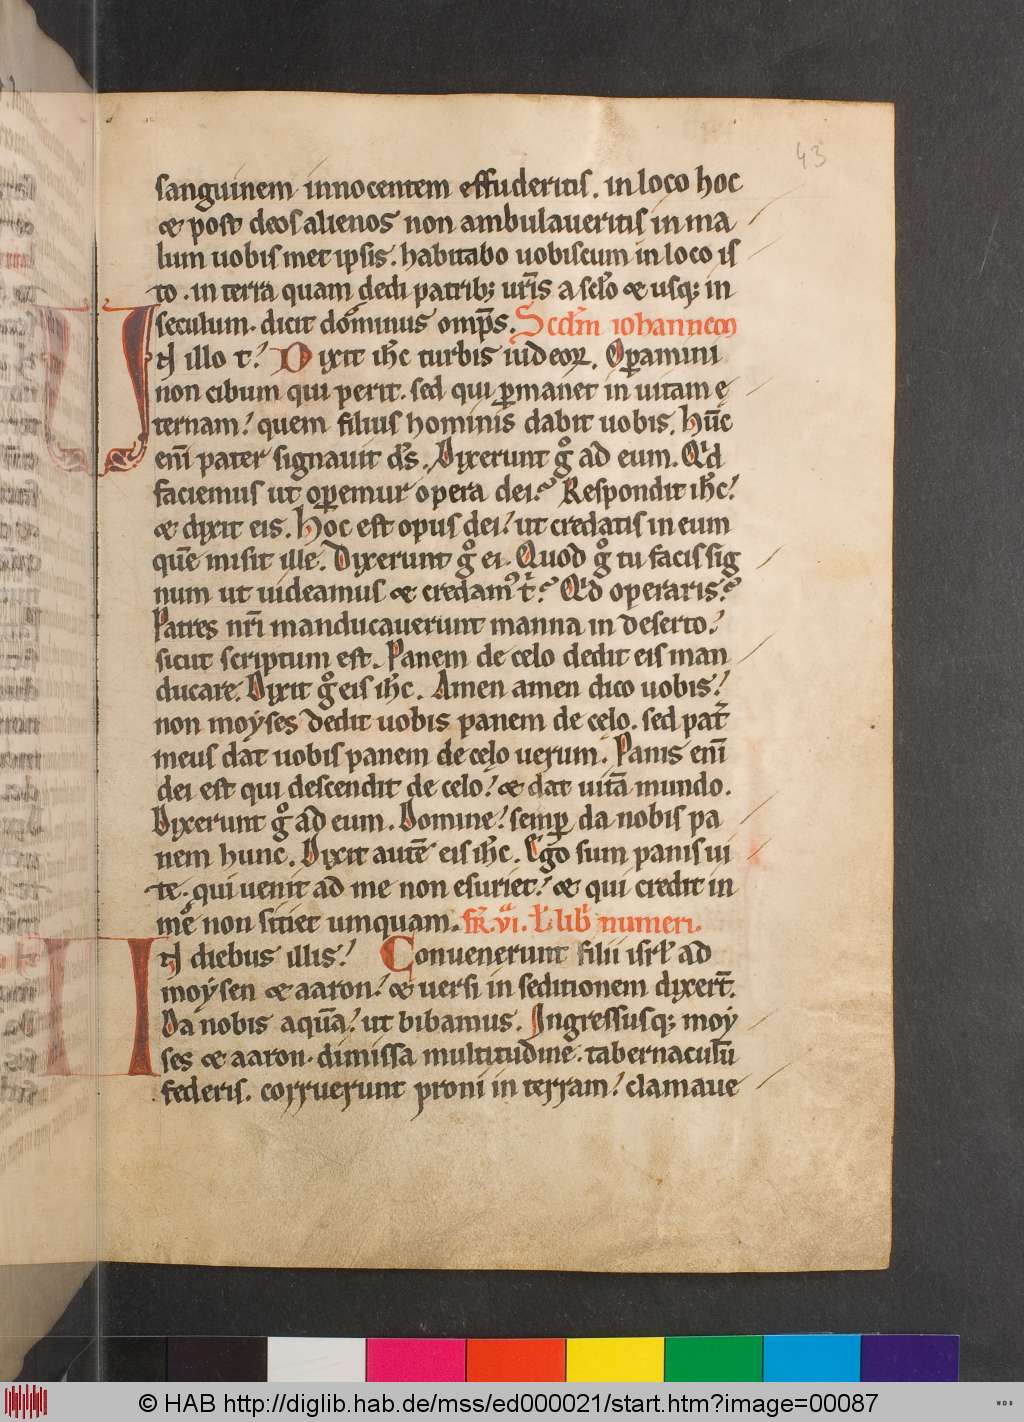 43
sanguinem innocentem effuderitis. in loco hoc
⁊ post deos alienos non ambulaueritis in ma
lum uobis met ipsis. habitabo uobiscum in loco is
to. in terra quam dedi patrib; ur̄is a sclo ⁊ usq; in
seculum. dicit dominus omp̄s. Scdm iohannem
IN illo t? Dixit ih̄c turbis iudeoꝝ. Oꝑamini
non cibum qui perit. sed qui ꝑmanet in uitam ę
ternam? quem filius hominis dabit uobis. hūc
enī pater signauit d̄s. Dixerunt gͦ ad eum. Qͥd
faciemus ut oꝑemur opera dei? Respondit ih̄c?
⁊ dixit eis. Hoc est opus dei? ut credatis in eum
quē misit ille. Dixerunt gͦ ei. Quod gͦ tu facis sig
num ut uideamus ⁊ credamꝰ t̄? Qͥd operaris?
Patres nr̄i manducauerunt manna in deserto?
sicut scriptum est. Panem de celo dedit eis man
ducare. Dixit gͦ eis ih̄c. Amen amen dico uobis?
non moyses dedit uobis panem de celo. sed pat̄
meus dat uobis panem de celo uerum. Panis enī
dei est qui descendit de celo? ⁊ dat uitā mundo.
Dixerunt gͦ ad eum. Domine? semꝑ da nobis pa
nem hunc. Dixit autē eis ih̄c. Ego sum panis ui
te. qui uenit ad me non esuriet? ⁊ qui credit in
me non sitiet umquam. fr̄. vi. ł lib̄ numeri.
IN diebus illis? Conuenerunt filii isrł ad
moysen ⁊ aaron? ⁊ uersi in seditionem dixert̄.
Da nobis aquā? ut bibamus. Ingressusq; moy
ses ⁊ aaron. dimissa multitudine. tabernaculū
federis. corruerunt proni in terram? clamaue
© HAB http://diglib.hab.de/mss/ed000021/start.htm?image=00087